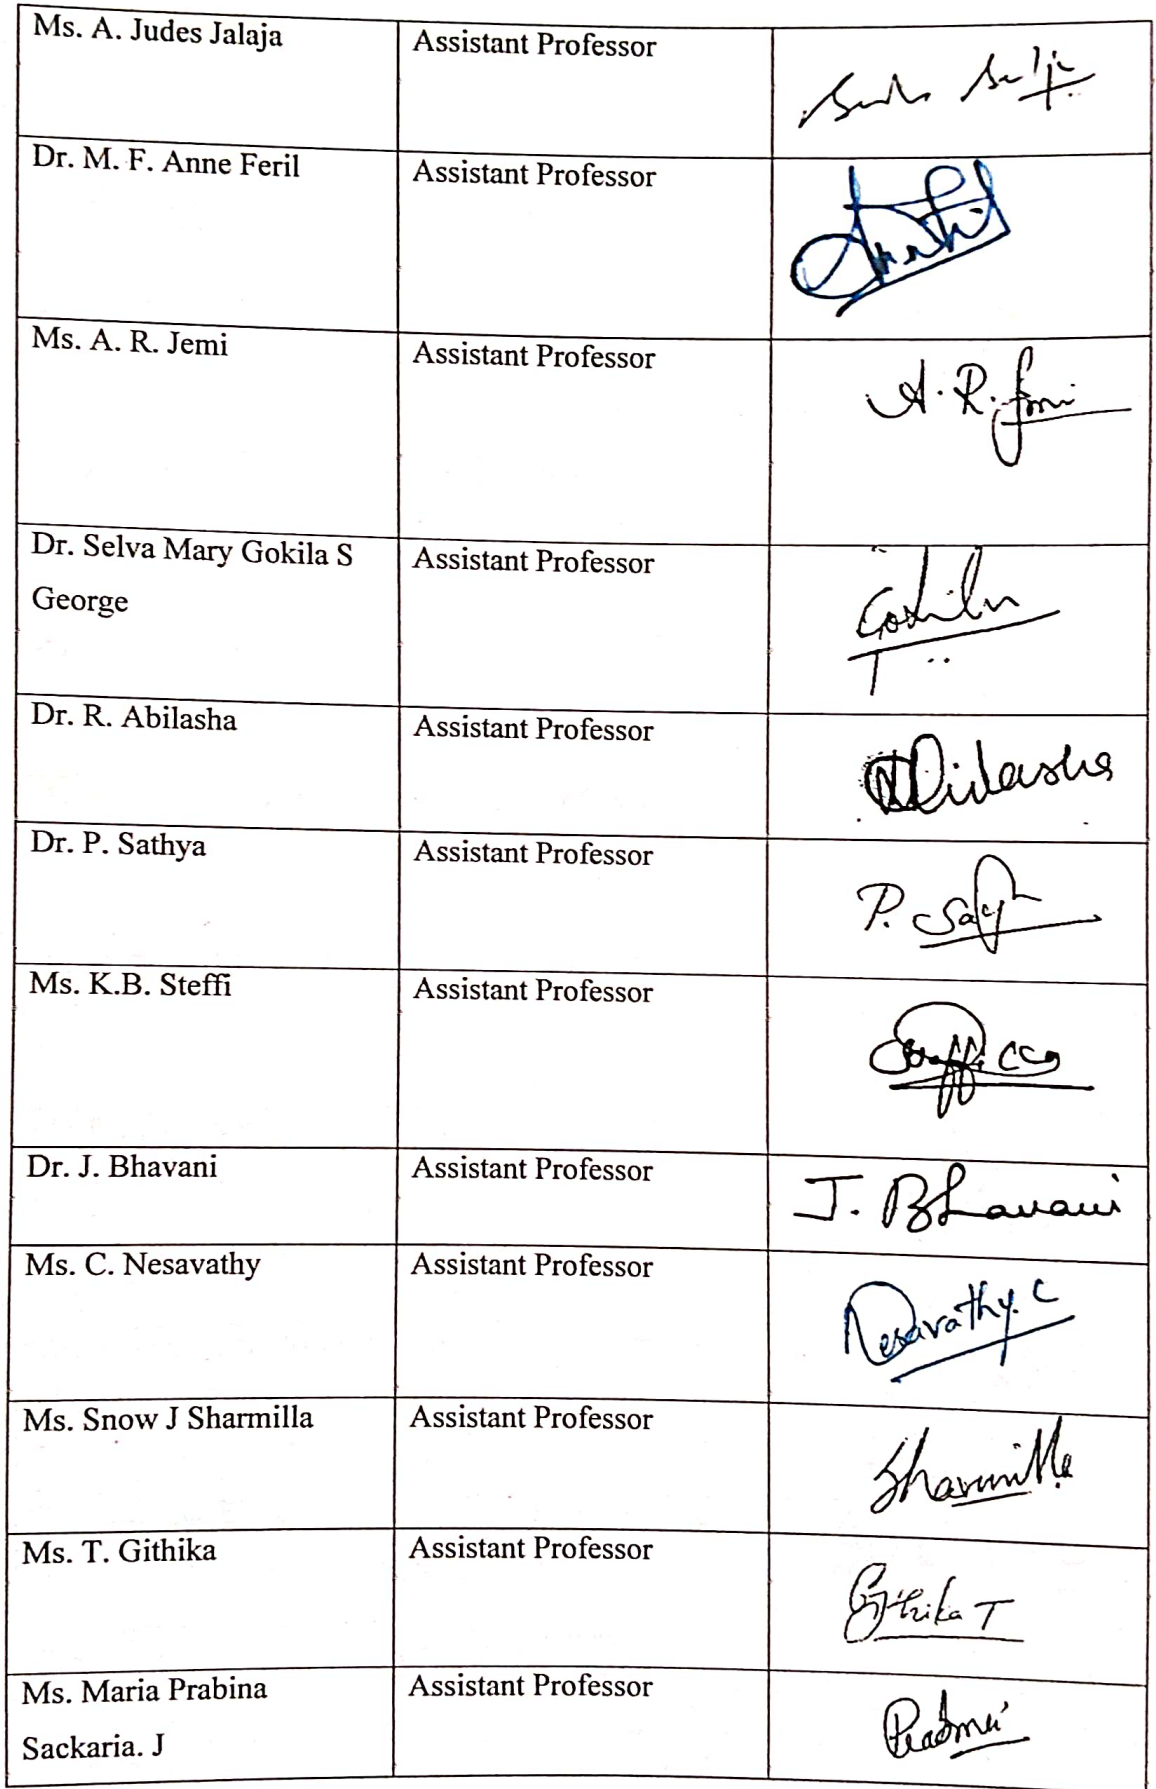 Ms. A. Judes Jalaja
Assistant Professor
Dr. M. F. Anne Feril
Assistant Professor
Ms. A. R. Jemi
Assistant Professor
A. R. Jemi
Dr. Selva Mary Gokila S
George
Assistant Professor
Gokila
Dr. R. Abilasha
Assistant Professor
Dr. P. Sathya
Assistant Professor
P.
Ms. K.B. Steffi
Assistant Professor
Dr. J. Bhavani
Assistant Professor
J. Bhavani
Ms. C. Nesavathy
Assistant Professor
Nesavathy. C
Ms. Snow J Sharmilla
Assistant Professor
Sharmilla
Ms. T. Githika
Assistant Professor
Githika T
Ms. Maria Prabina
Sackaria. J
Assistant Professor